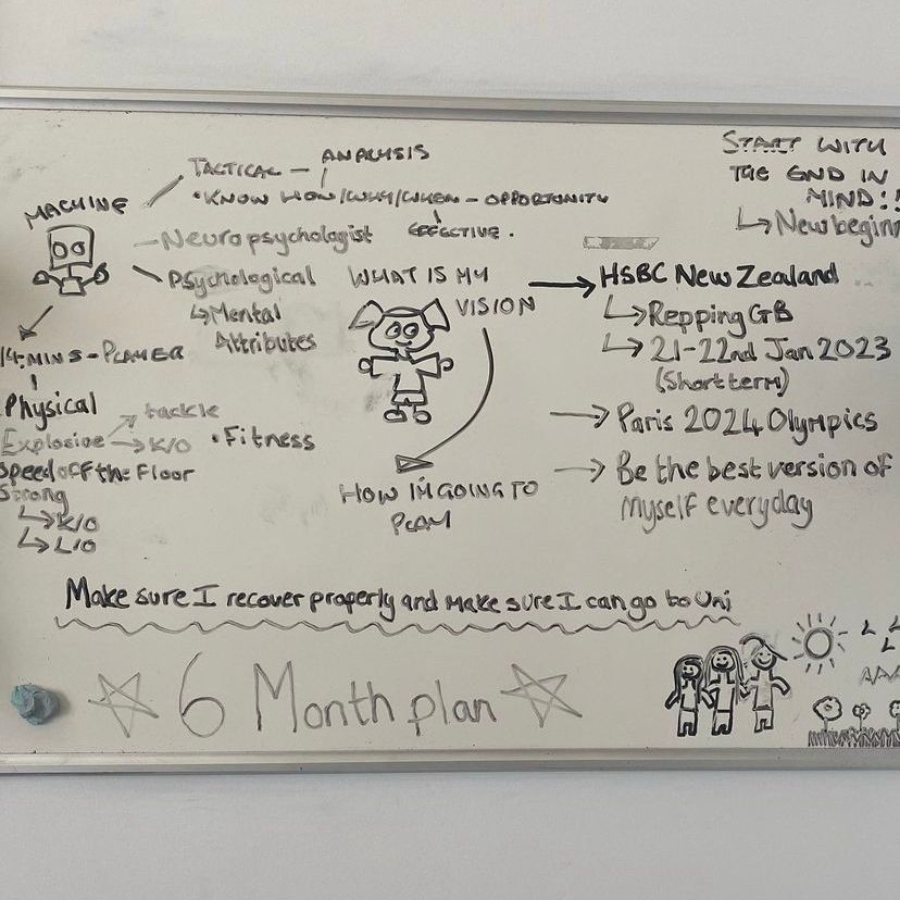 START WITH
THE END IN
MIND!!
New begin
MACHINE
TACTICAL - ANALYSIS
• KNOW HOW/WHY/WHEN - OPPORTUNITY
EFFECTIVE.
Neuropsychologist
Psychological
Mental
Attributes
14 MINS - PLAYER
Physical
Explosive
tackle
K/O
• Fitness
Speed off the Floor
Strong
K/O
L/O
WHAT IS MY
VISION
HOW I'M GOING TO
PLAY
HSBC New Zealand
Repping GB
21-22nd Jan 2023
(Short term)
Paris 2024 Olympics
Be the best version of
myself everyday
Make sure I recover properly and make sure I can go to Uni
6 Month plan